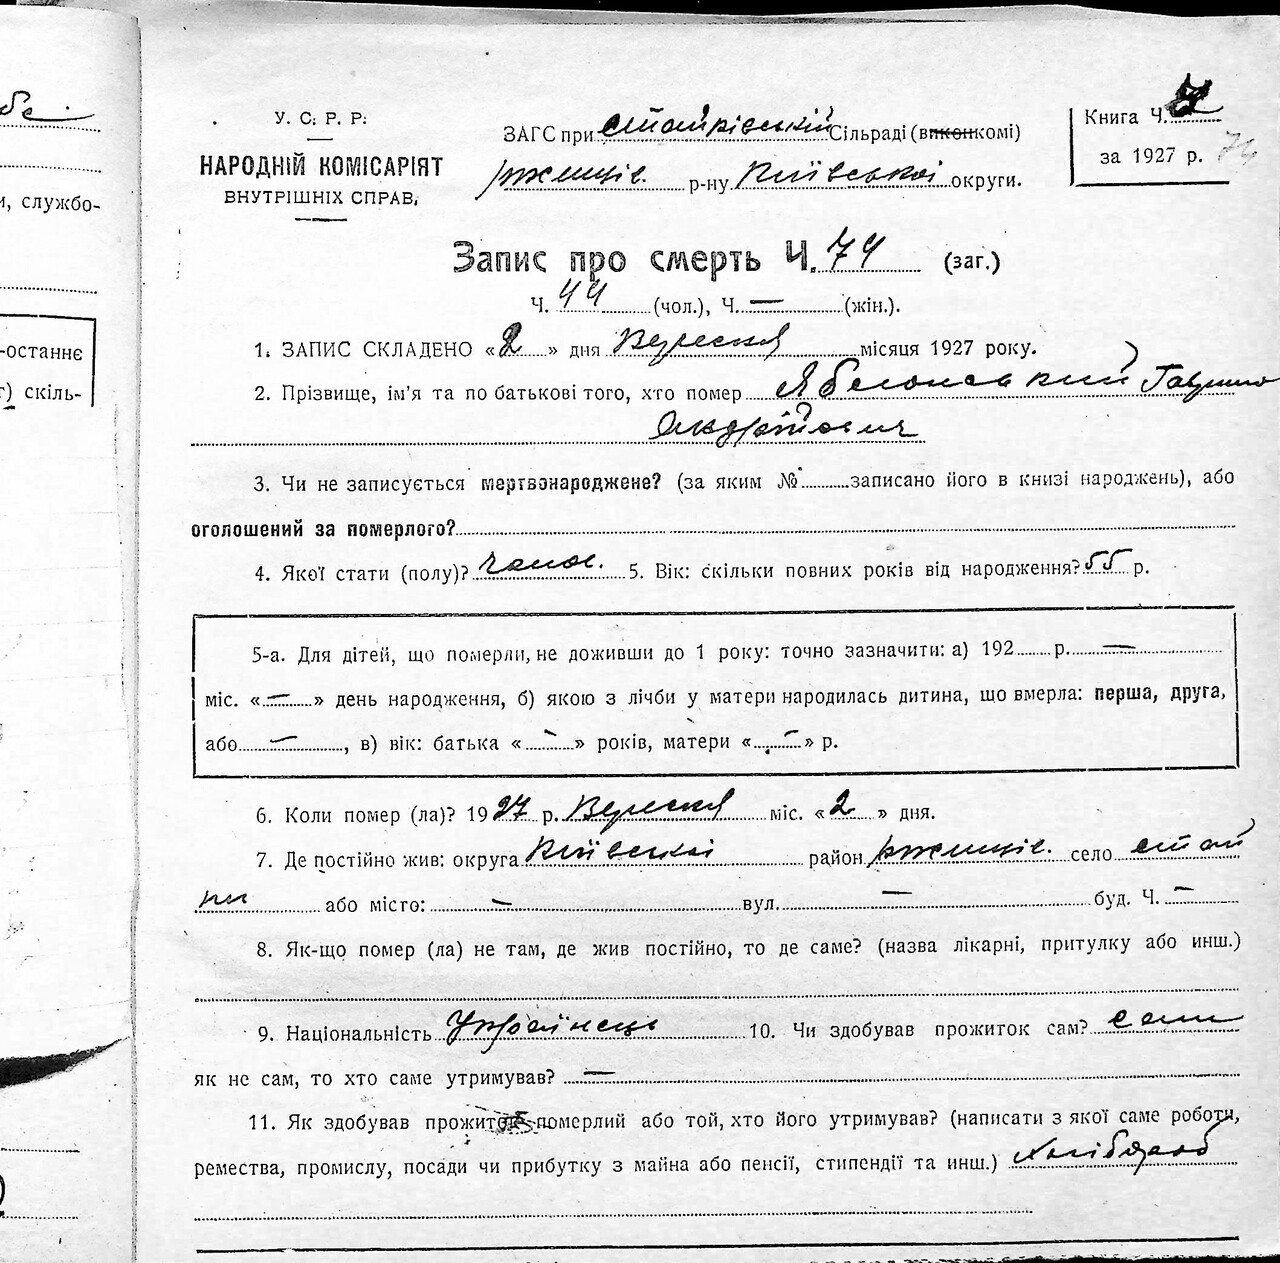 бе
и, службо-
-останнє
г) скіль-
У. С. Р. Р.
НАРОДНІЙ КОМІСАРІЯТ
ВНУТРІШНІХ СПРАВ.
ЗАГС при стайківській Сільраді (виконкомі)
ржищів. р-ну Київської округи.
Книга Ч. 7
за 1927 р. 74
Запис про смерть Ч. 74 (заг.)
Ч. 44 (чол.), Ч. — (жін.).
1. ЗАПИС СКЛАДЕНО «2» дня Вересня місяця 1927 року.
2. Прізвище, ім'я та по батькові того, хто помер Яблонський Гаврило
Андрійович
3. Чи не записується мертвонароджене? (за яким № записано його в книзі народжень), або
оголошений за померлого?
4. Якої стати (полу)? чолов. 5. Вік: скільки повних років від народження? 55 р.
5-а. Для дітей, що померли, не доживши до 1 року: точно зазначити: а) 192 р. —
міс. «—» день народження, б) якою з лічби у матери народилась дитина, що вмерла: перша, друга,
або —, в) вік: батька «—» років, матери «—» р.
6. Коли помер (ла)? 1927 р. Вересня міс. «2» дня.
7. Де постійно жив: округа Київської район ржищів. село стай
ки або місто: — вул. — буд. Ч. —
8. Як-що помер (ла) не там, де жив постійно, то де саме? (назва лікарні, притулку або инш.)
9. Національність Українець 10. Чи здобував прожиток сам? сам
як не сам, то хто саме утримував? —
11. Як здобував прожиток померлий або той, хто його утримував? (написати з якої саме роботи,
ремества, промислу, посади чи прибутку з майна або пенсії, стипендії та инш.) хлібороб